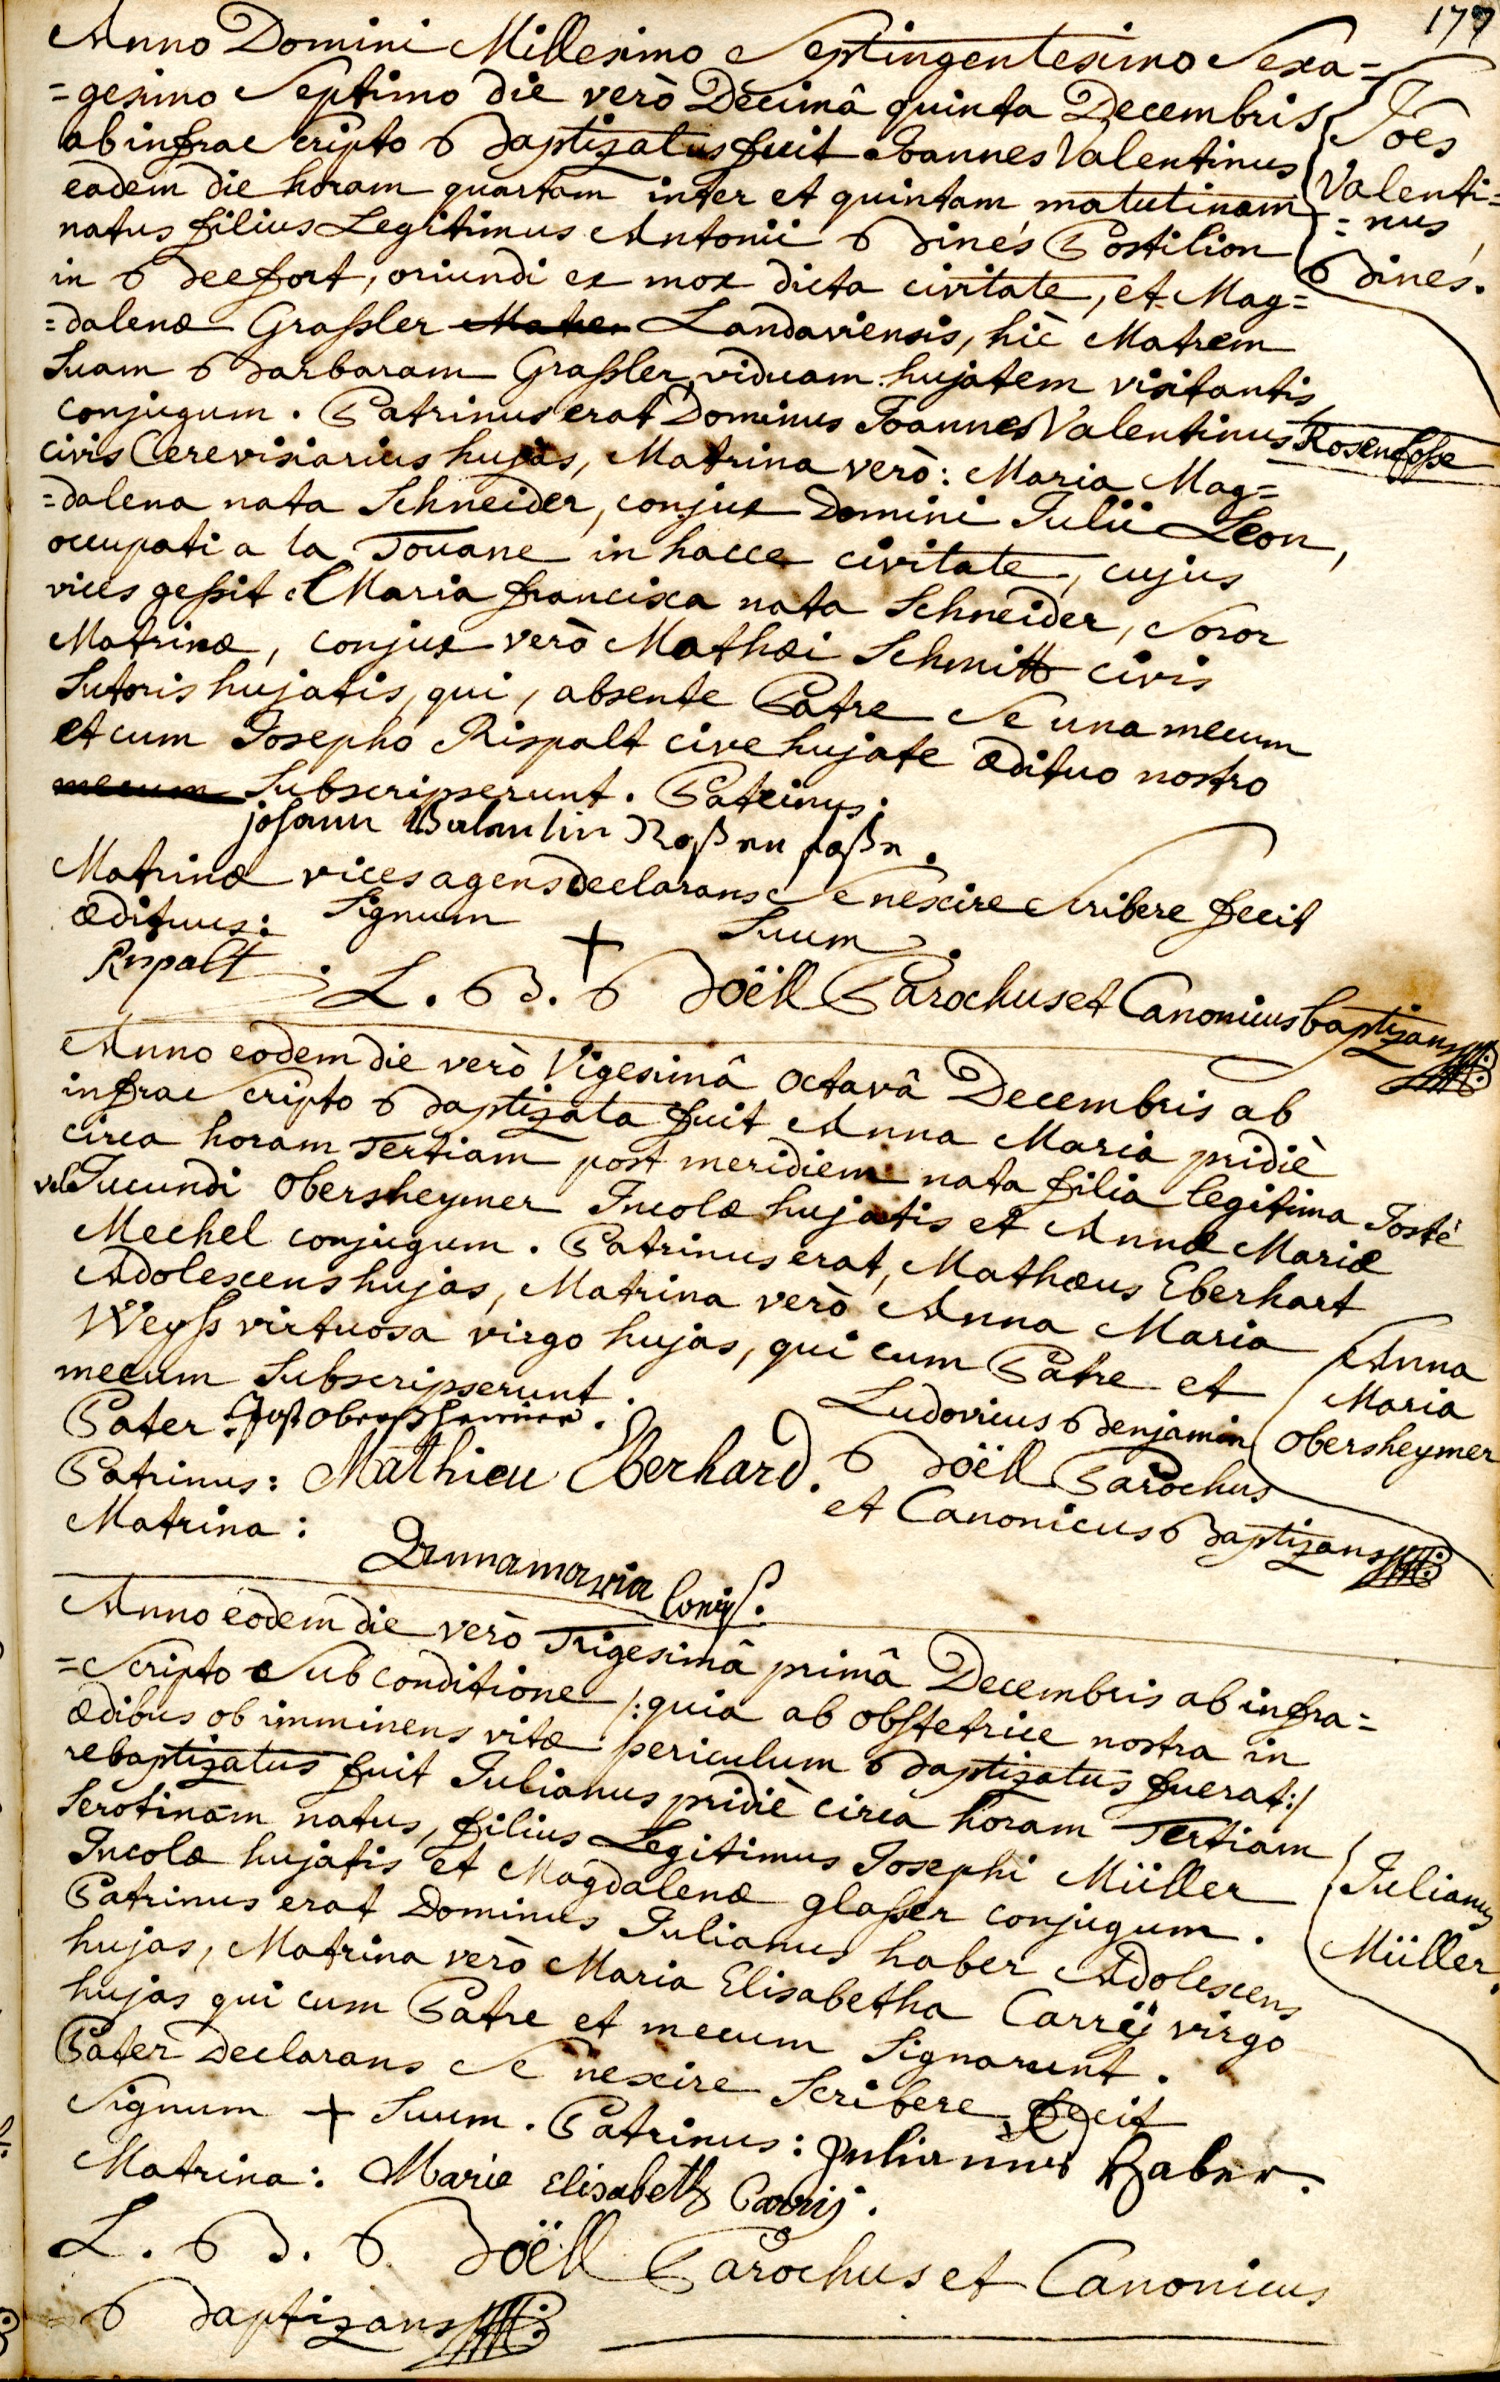 177
Anno Domini Millesimo Septingentesimo Sexa=
=gesimo Septimo die verò Decimâ quinta Decembris
ab infrascripto Baptizatus fuit Joannes Valentinus
eadem die horam quartam inter et quintam matutinam
natus filius Legitimus Antonii Binés Postilion
in Beefort, oriundi ex mox dicta civitate, et Mag=
=dalenæ Graßler Landaviensis, hìc Matrem
Suam Barbaram Graßler, viduam hujatem visitantis
conjugum. Patrinus erat Dominus Joannes Valentinus Rosenfosse
civis Cerevisiarius hujas, Matrina verò: Maria Mag=
=dalena nata Schneider, conjux Domini Julii Leon,
occupati a la Touane in hacce civitate, cujus
vices geßit Maria francisca nata Schneider, Soror
Matrinæ, conjux verò Mathæi Schmitt civis
Sutoris hujatis, qui, absente Patre Se una mecum
et cum Josepho Rispalt cive hujate ædituo nostro
mecum Subscripserunt. Patrinus:
johann Valentin Roßen foßn.
Matrinæ vices agens declarans Se nescire Scribere fecit
ædituus: Signum + Suum.
Rispalt
L. B. Boëll Parochus et Canonicus baptizans
Joës
Valenti=
=nus
Binés.
Anno eodem die verò Vigesimâ octavâ Decembris ab
infrascripto Baptizata fuit Anna Maria pridiè
circa horam Tertiam post meridiem nata filia legitima Josté
vel Jucundi Obersheymer Incolæ hujatis et Annæ Mariæ
Mechel conjugum. Patrinus erat, Mathæus Eberhart
Adolescens hujas, Matrina verò Anna Maria
Weyß virtuosa virgo hujas, qui cum Patre et
mecum Subscripserunt.
Pater: Jost
Patrinus: Mathieu Eberhard.
Matrina: Annamaria
Ludovicus Benjamin
Boëll Parochus
et Canonicus Baptizans
Anna
Maria
Obersheymer
Anno eodem die verò Trigesimâ primâ Decembris ab infra=
=Scripto Sub conditione /: quia ab obstetrice nostra in
ædibus ob imminens vitæ periculum Baptizatus fuerat :/
rebaptizatus fuit Julianus pridiè circa horam Tertiam
Serotinam natus, filius Legitimus Josephi Müller
Incolæ hujatis et Magdalenæ glaßer conjugum.
Patrinus erat Dominus Julianus haber Adolescens
hujas, Matrina verò Maria Elisabetha Carrÿ virgo
hujas qui cum Patre et mecum Signarunt.
Pater Declarans Se nescire Scribere fecit
Signum + Suum. Patrinus: Julianus Haber.
Matrina: Marie Elisabeth Carrij.
L. B. Boëll Parochus et Canonicus
Baptizans
Julianus
Müller.